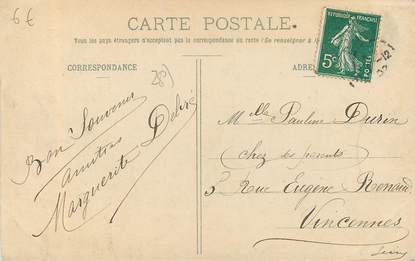 6€
CARTE POSTALE
Tous les pays étrangers n'acceptent pas la correspondance au recto (Se renseigner à la
CORRESPONDANCE
ADRE
28)
REPUBLIQUE FRANÇAISE
5c
POSTES
Bon Souvenir
amitiés
Marguerite Deliré
Melle Pauline Durin
chez ses parents
3 Rue Eugène Renaud
Vincennes
Seine